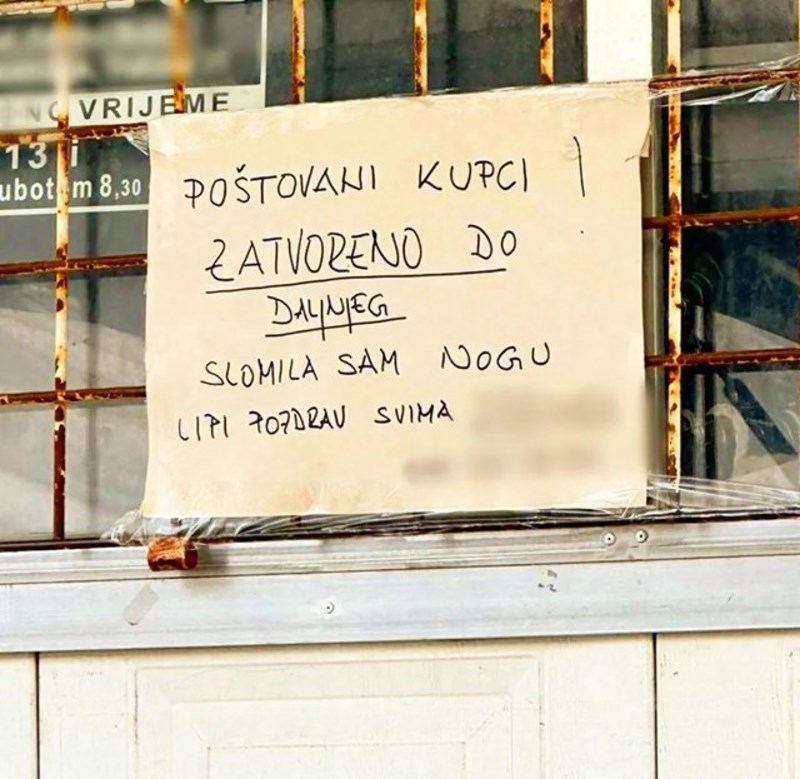 VRIJEME
13 i
subotom 8,30
POŠTOVANI KUPCI !
ZATVORENO DO
DALJNJEG
SLOMILA SAM NOGU
LIPI POZDRAV SVIMA